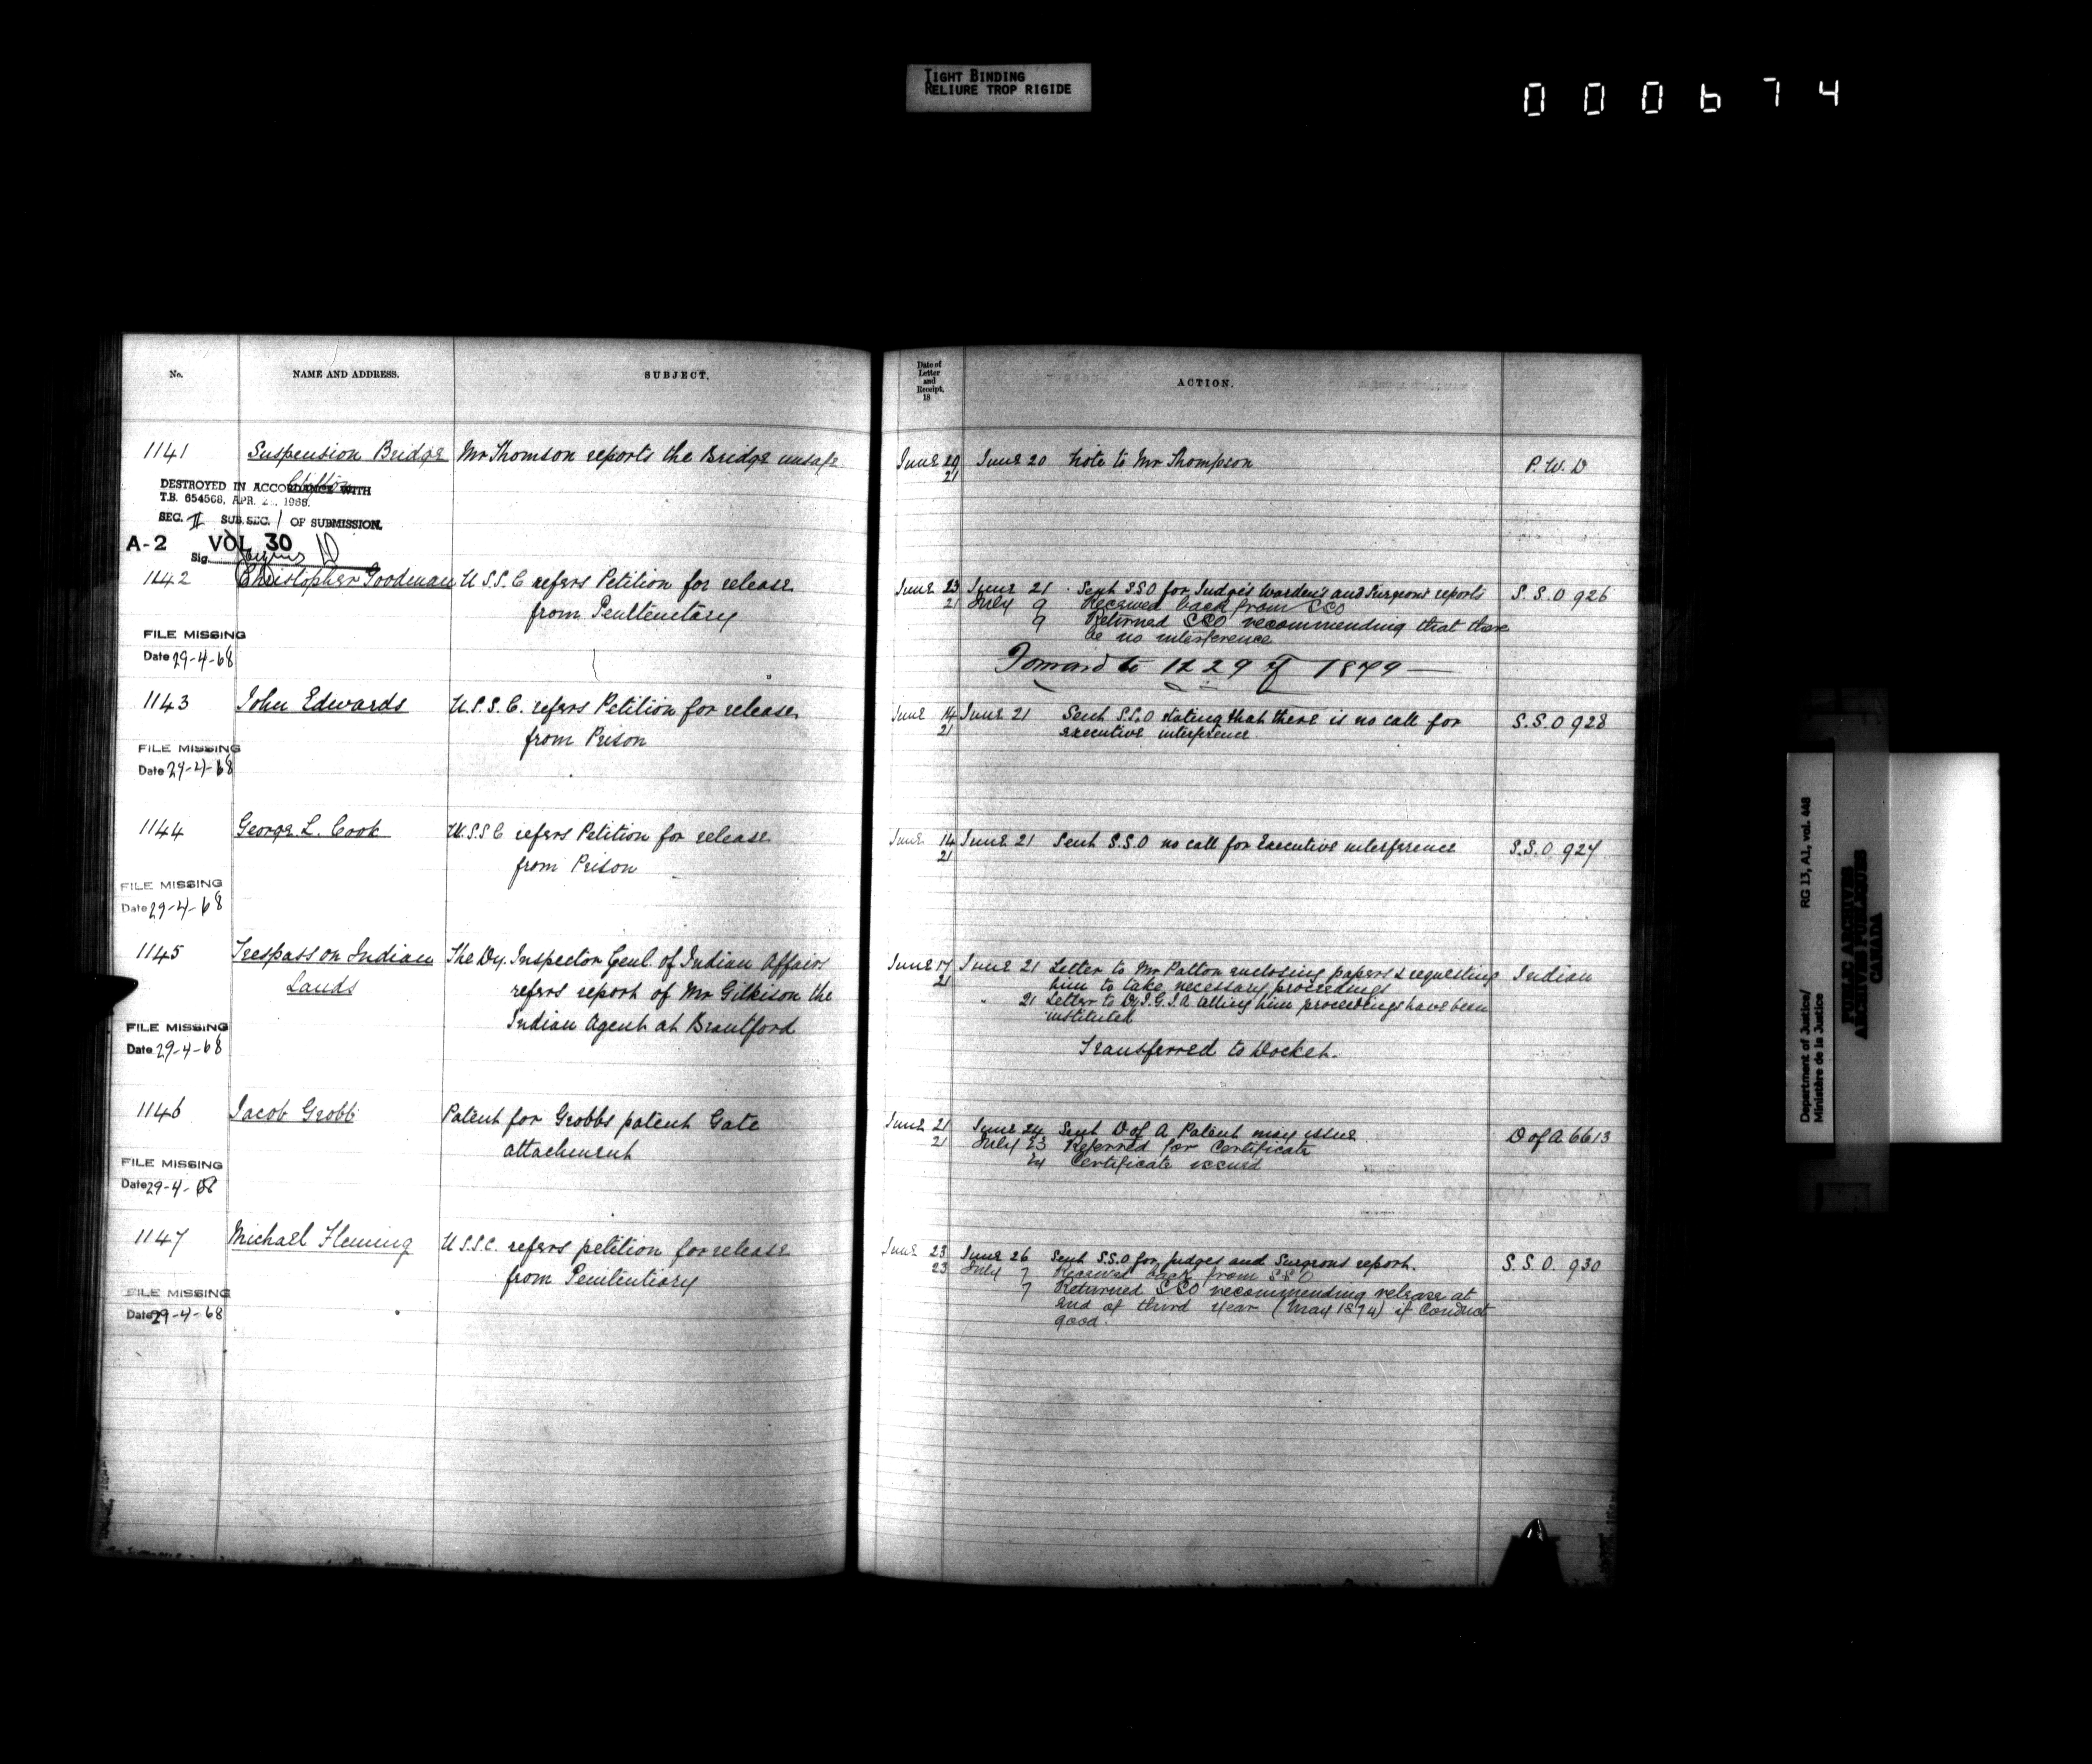 TIGHT BINDING
RELIURE TROP RIGIDE
000674
No.
NAME AND ADDRESS.
SUBJECT.
1141
Suspension Bridge
Mr Thomson reports the Bridge unsafe
Clifton
DESTROYED IN ACCORDANCE WITH
T.B. 654566, APR. 2 , 1966.
SEC. II SUB. SEC. 1 OF SUBMISSION.
A-2 VOL 30
Sig.
1142
Christopher Goodman
U.S.S.C refers Petition for release
from Penitentiary
FILE MISSING
Date 29-4-68
1143
John Edwards
U.S.S.C. refers Petition for release
from Prison
FILE MISSING
Date 29-4-68
1144
George L. Cook
U.S.S.C refers Petition for release
from Prison
FILE MISSING
Date 29-4-68
1145
Trespass on Indian
Lands
The Dy. Inspector Genl. of Indian Affairs
refers report of Mr Gilkison the
Indian Agent at Brantford
FILE MISSING
Date 29-4-68
1146
Jacob Grobb
Patent for Grobbs patent Gate
attachment
FILE MISSING
Date 29-4-68
1147
Michael Fleming
U.S.S.C. refers petition for release
from Penitentiary
FILE MISSING
Date 29-4-68
Date of
Letter
and
Receipt.
18
ACTION.
June 20 June 20 Note to Mr Thompson P.W.D
21
June 23 June 21 Sent S.S.O for Judge's Warden's and Surgeons reports S.S.O 926
21 July 9 Received back from SSO
9 Returned SSO recommending that there
be no interference
Forward to 1229 of 1879
June 14 June 21 Sent S.S.O stating that there is no call for S.S.O 928
21 executive interference
June 14 June 21 Sent S.S.O no call for Executive interference S.S.O 927
21
June 17 June 21 Letter to Mr Patton enclosing papers & requesting Indian
21 him to take necessary proceedings
" 21 Letter to Dy. I.G.I.A telling him proceedings have been
instituted
Transferred to Docket.
June 21 June 24 Sent D of A Patent may issue D of A 6613
21 July 23 Referred for Certificate
24 Certificate issued
June 23 June 26 Sent S.S.O for judges and Surgeons report. S.S.O. 930
23 July 7 Received back from SSO
7 Returned SSO recommending release at
end of third year (May 1874) if Conduct
good.
Department of Justice/ RG 13, A1, vol. 448
Ministère de la Justice
PUBLIC ARCHIVES
ARCHIVES PUBLIQUES
CANADA